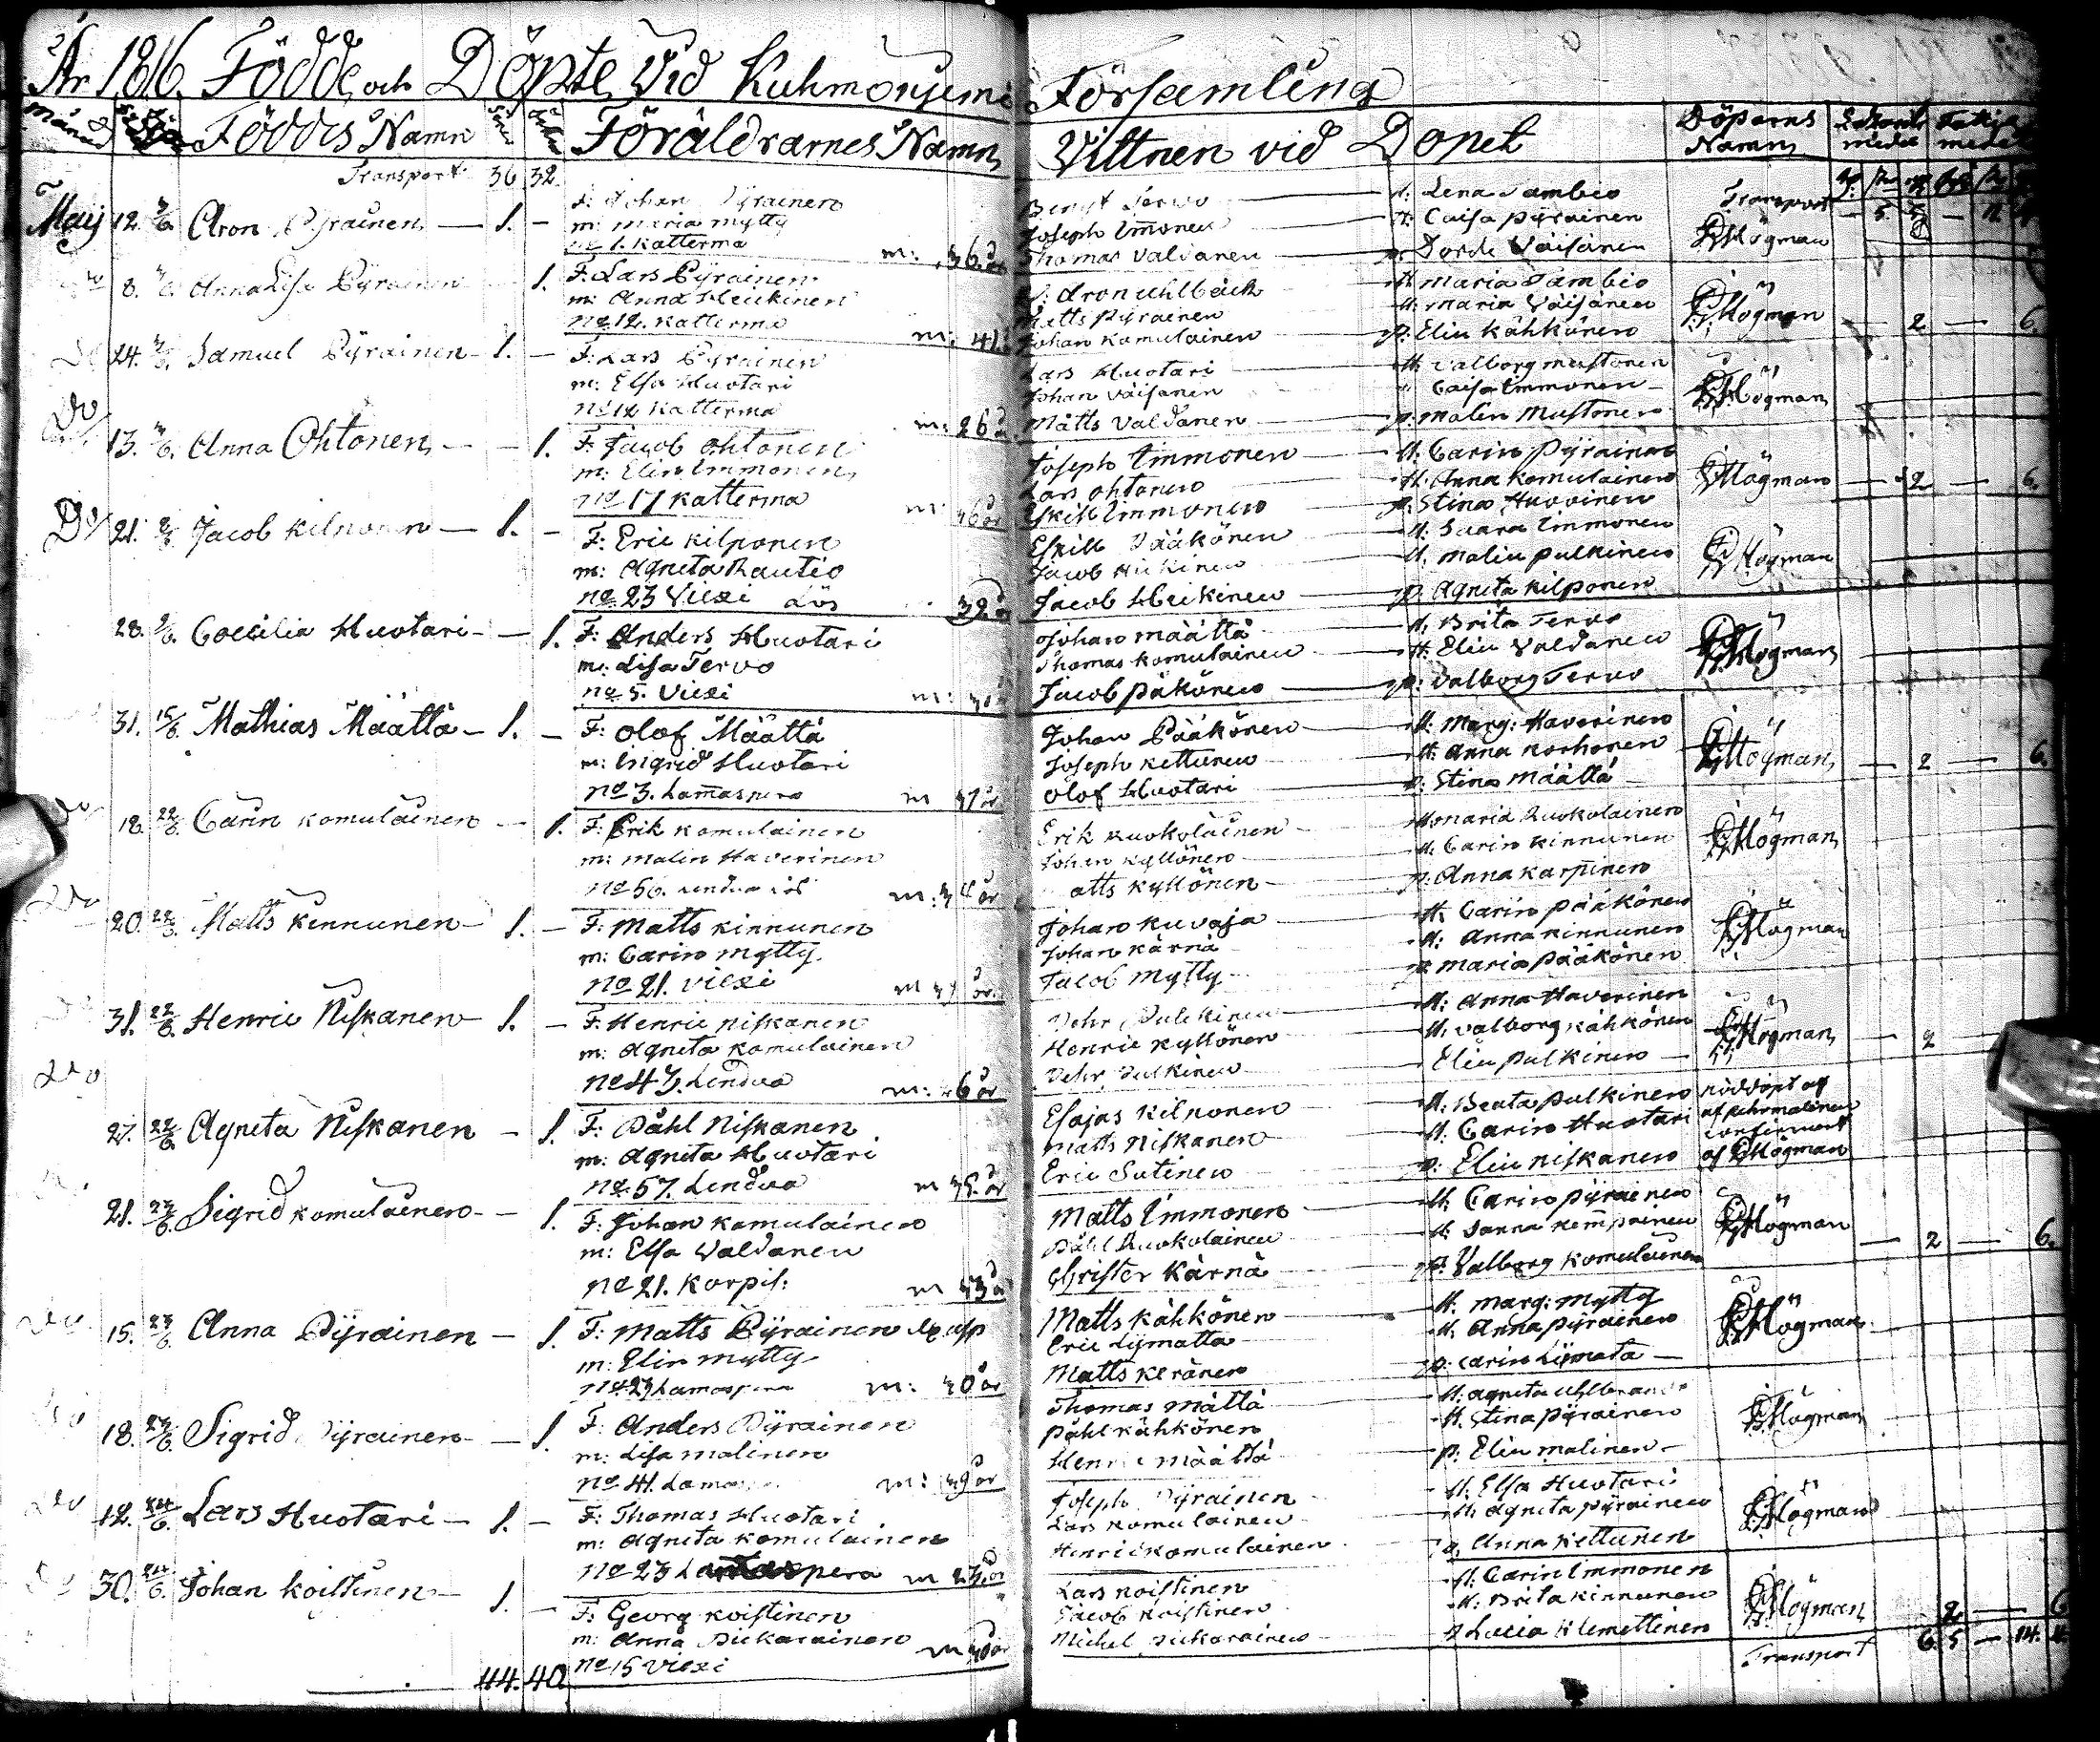 År 1816. Födde och Döpte Vid Kuhmoniemi Församling
Månad Födde Döpte Föddes Namn Söner Döttrar Föräldrarnes Namn Vittnen vid Dopet Döparns Namn
Transport 36 32 Transport
Maij 12. 3/6 Aron Pyrainen — 1. —
F: Johan Pyrainen
m: Maria Mytty
no 1. Katterma m: 36 år
Bengt Tervo — H: Lena Tambio
Joseph Immonen — H: Caisa Pyrainen
Thomas Valdanen — p: Dorde Väisänen
Högman
Do 8. Anna Lisa Pyrainen — 1.
F: Lars Pyrainen
m: Anna Heickinen
no 12. Katterma m: 41
Aron Uhlbäck — H: Maria Tambio
Matts Pyrainen — H: Maria Väisänen
Johan Komulainen — p: Elin Kähkönen
Högman — 2 — 6.
Do 24. Samuel Pyrainen — 1. —
F: Lars Pyrainen
m: Elsa Huotari
no 12 Katterma m: 26 år
Lars Huotari — H: Valborg Mustonen
Johan Väisänen — Caisa Immonen
Matts Valdanen — p: Malin Mustonen
Högman
Do 13. Anna Ohtonen — 1.
F: Jacob Ohtonen
m: Elin Immonen
no 17 Katterma m: 36 år
Joseph Immonen — H: Carin Pyrainen
Lars Ohtonen — H: Anna Komulainen
Eskill Immonen — p: Stina Huovinen
Högman — 2 — 6.
Do 21. Jacob Kilponen — 1. —
F: Eric Kilponen
m: Agneta Rautio
no 23 Viexi Lös 32 år
Eskill Pääkönen — H: Saara Immonen
Jacob Heikinen — H: Malin Pulkinen
Jacob Heikinen — p: Agneta Kilponen
Högman
28. Coecilia Huotari — 1.
F: Anders Huotari
m: Lisa Tervo
no 5. Viexi m:
Johan Määttä — H: Brita Tervo
Thomas Komulainen — H: Elin Valdanen
Jacob Päkönen — p: Valborg Tervo
Högman
31. 15/6. Mathias Määttä — 1. —
F: Olof Määttä
m: Ingrid Huotari
no 3. Lamaspera m 41 år
Johan Pääkönen — H: Marg: Haverinen
Joseph Kettunen — H: Anna Korhonen
Olof Huotari — p: Stina Määttä
Högman — 2 — 6.
Do 18. 22/6. Carin Komulainen — 1.
F: Erik Komulainen
m: Malin Haverinen
no 56. m: 34 år
Erik Ruokolainen — Maria Ruokolainen
Johan Kyllönen — H: Carin Kinnunen
Matts Kyllönen — p: Anna Karpinen
Högman
Do 20. 22/6. Matts Kinnunen — 1. —
F: Matts Kinnunen
m: Carin Mytty
no 21. Viexi
Johan Kuvaja — H: Carin Pääkönen
Johan Kärnä — H: Anna Kinnunen
Jacob Mytty — p: Maria Pääkönen
Högman
31. 22/6. Henric Niskanen — 1. —
F: Henric Niskanen
m: Agneta Komulainen
no 43. Lendua m: 26 år
Pehr Pulkinen — H: Anna Haverinen
Henric Kyllönen — H: Valborg Kähkönen
Pehr Pulkinen — Elin Pulkinen
Högman — 2
Do 27. 22/6. Agneta Niskanen — 1.
F: Påhl Niskanen
m: Agneta Huotari
no 57. Lendua m 35 år
Esajas Kilponen — H: Beata Pulkinen
Matts Niskanen — H: Carin Huotari
Eric Sutinen — p: Elin Niskanen
nöddöpt af
af Pehr Malinen
confirmert
af Högman
21. 23/6. Sigrid Komulainen — 1.
F: Johan Komulainen
m: Elsa Valdanen
no 21. Korpis: m 43 år
Matts Immonen — H: Carin Pyrainen
Påhl Ruokolainen — H: Sanna Kemppainen
Christer Kärnä — p: Valborg Komulainen
Högman — 2 — 6.
Do 15. 23/6. Anna Pyrainen — 1.
F: Matts Pyrainen
m: Elin Mytty
no 23 Lamaspera m: 40 år
Matts Kähkönen — H: Marg: Mytty
Eric Lymatta — H: Anna Pyrainen
Matts Keränen — p: Carin Lymata
Högman
Do 18. 23/6. Sigrid Pyrainen — 1.
F: Anders Pyrainen
m: Lisa Malinen
no 41. Lamas m: 39 år
Thomas Mättä — H: Agneta Uhlbrandt
Påhl Kähkönen — H: Stina Pyrainen
Henric Määttä — p: Elin Malinen
Högman
Do 12. 24/6. Lars Huotari — 1. —
F: Thomas Huotari
m: Agneta Komulainen
no 23 Lamaspera m 23 år
Joseph Pyrainen — H: Elsa Huotari
Lars Komulainen — H: Agneta Pyrainen
Henric Komulainen — p: Anna Kettunen
Högman
Do 30. 24/6. Johan Koistinen — 1. —
F: Georg Koistinen
m: Anna Pickarainen
no 15 Viexi m 40 år
Lars Koistinen — H: Carin Immonen
Jacob Koistinen — H: Brita Kinnunen
Michel Pickarainen — p: Lucia Klemettinen
Högman 2 — 6
44. 40 Transport 6. 5 — 14.